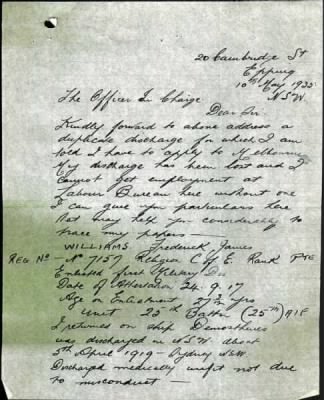 20 Cambridge St
Epping
10th May 1935
N.S.W.
The Officer In Charge
Dear Sir
Kindly forward to above address a
duplicate discharge for which I am
told I have to apply to Melbourne
My discharge has been lost and I
Cannot get employment at
Labour Bureau here without one
I can give you particulars here
that may help you considerably to
trace my papers —
WILLIAMS Frederick James
REG No — No 7157 Religion C of E. Rank PTE
Enlisted first
Date of Attestation 24.9.17
Age on Enlistment 27 yrs
Unit 25th Battn (25th) AIF
I returned on ship
was discharged in N.S.W. about
5th April 1919 — Sydney NSW
Discharged medically unfit not due
to misconduct —